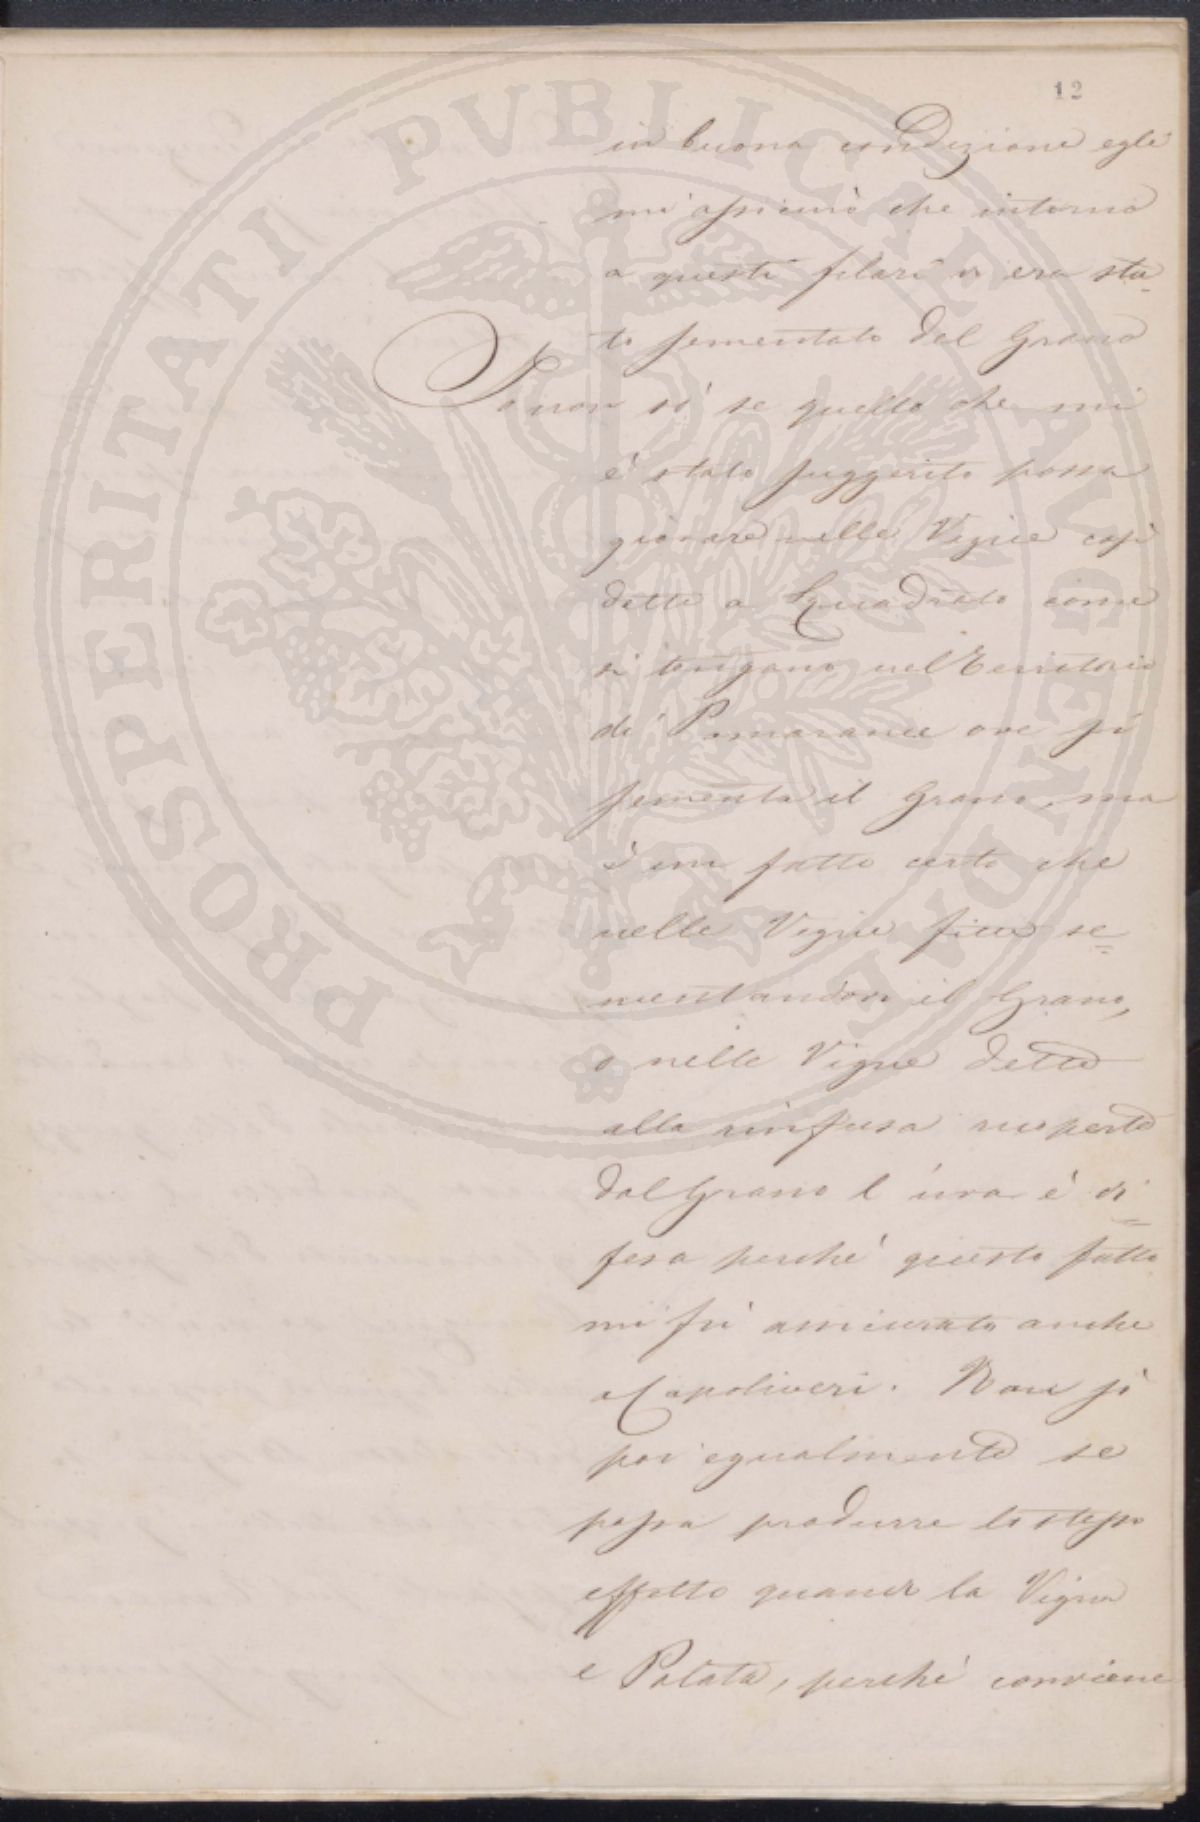 12
in buona condizione egli
mi assicurò che intorno
a questi filari vi era sta-
to sementato del Grano
Io non sò se quello che mi
è stato suggerito possa
giovare nelle Vigne così
dette a Quadrato come
si tengano nel Territorio
di Pomarance ove si
sementa il Grano, ma
è un fatto certo che
nelle Vigne fitte se=
mentandovi il Grano,
o nelle Vigne dette
alla rinfusa ricoperte
dal Grano l'uva è di=
fesa perchè questo fatto
mi fù assicurato anche
a Capoliveri. Non sò
poi egualmente se
possa produrre lo stesso
effetto quando la Vigna
è Potata, perchè conviene
PROSPERITATI PVBLICAE AVGENDAE